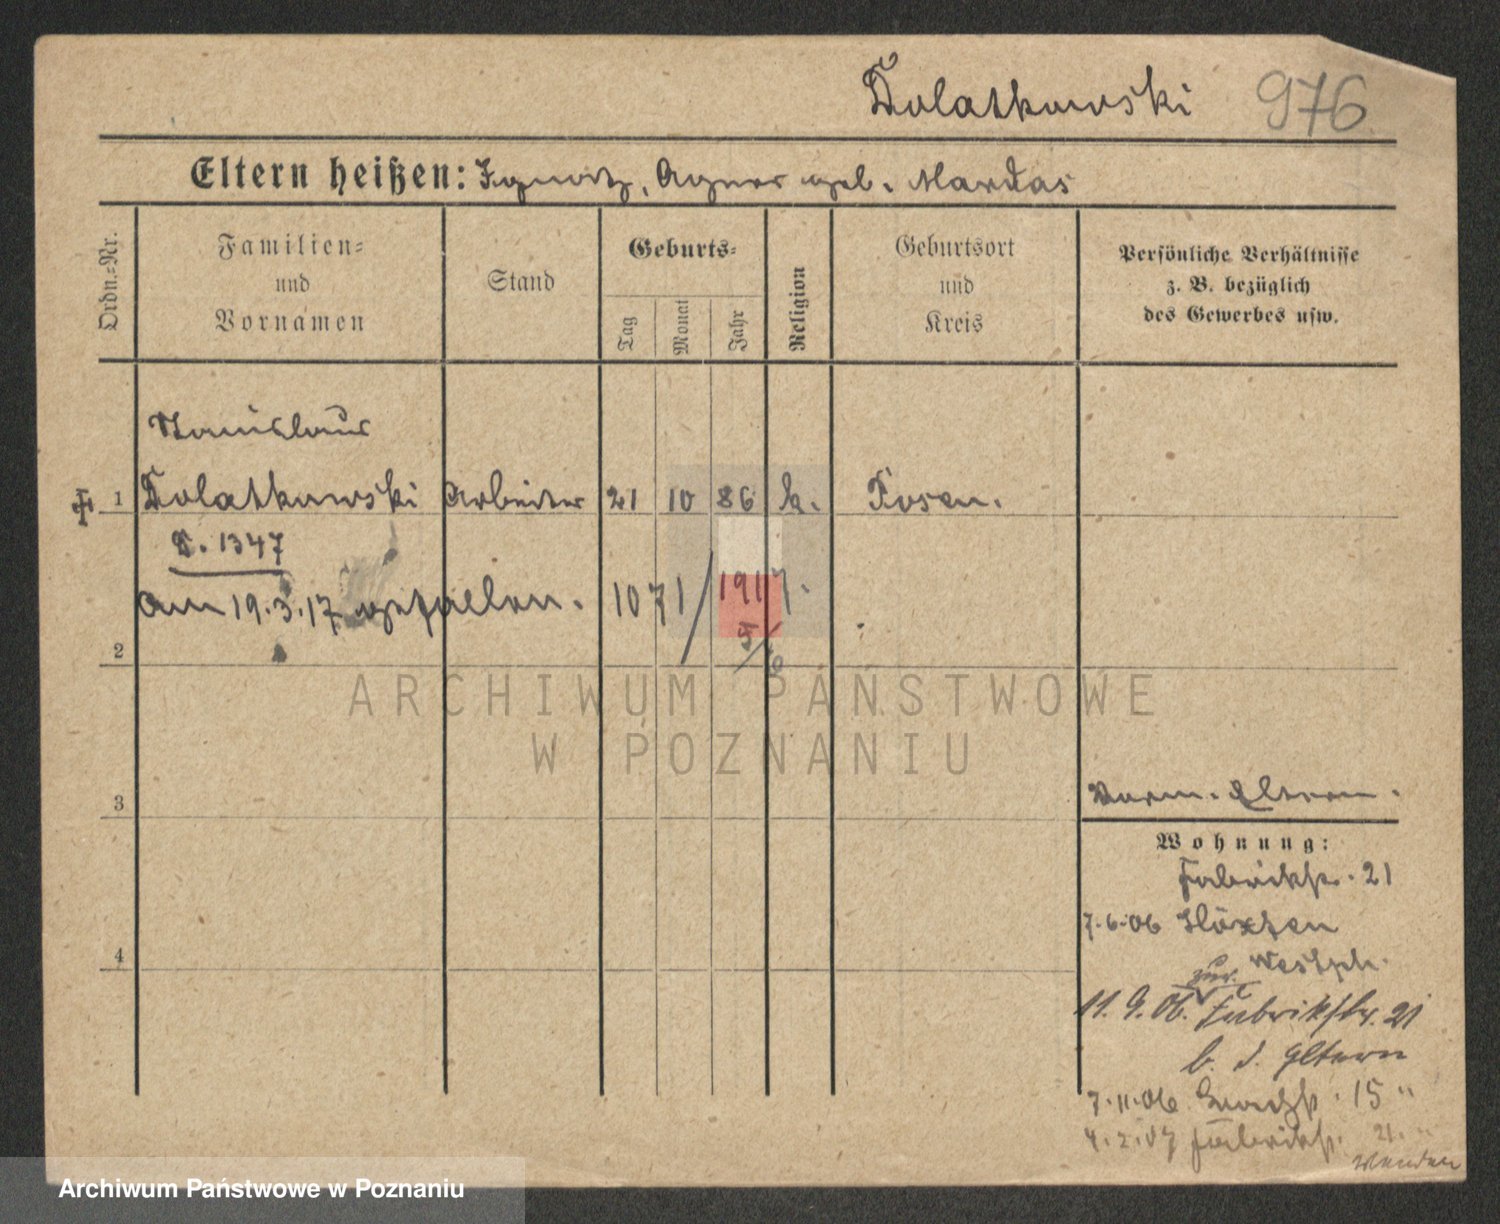 Dolatkowski 976
Eltern heißen: Ignatz, Agnes geb. Mardas
Ordn.=Nr.
Familien=
und
Vornamen
Stand
Geburts=
Tag
Monat
Jahr
Religion
Geburtsort
und
Kreis
Persönliche Verhältnisse
z. B. bezüglich
des Gewerbes usw.
Stanislaus
1 Dolatkowski Arbeiter 21 10 86 k. Posen.
1347
am 19.3.17 gefallen. 1071/1917.
2
ARCHIWUM PAŃSTWOWE
W POZNANIU
3
Eltern.
Wohnung:
Fabrikstr. 21
7.6.06 Höxter
Westph.
zur.
11.9.06. Fabrikstr. 21
b. d. Eltern
4
7.11.06 15 "
4.2.07 Fabrikstr. 21. "
Wenden
Archiwum Państwowe w Poznaniu